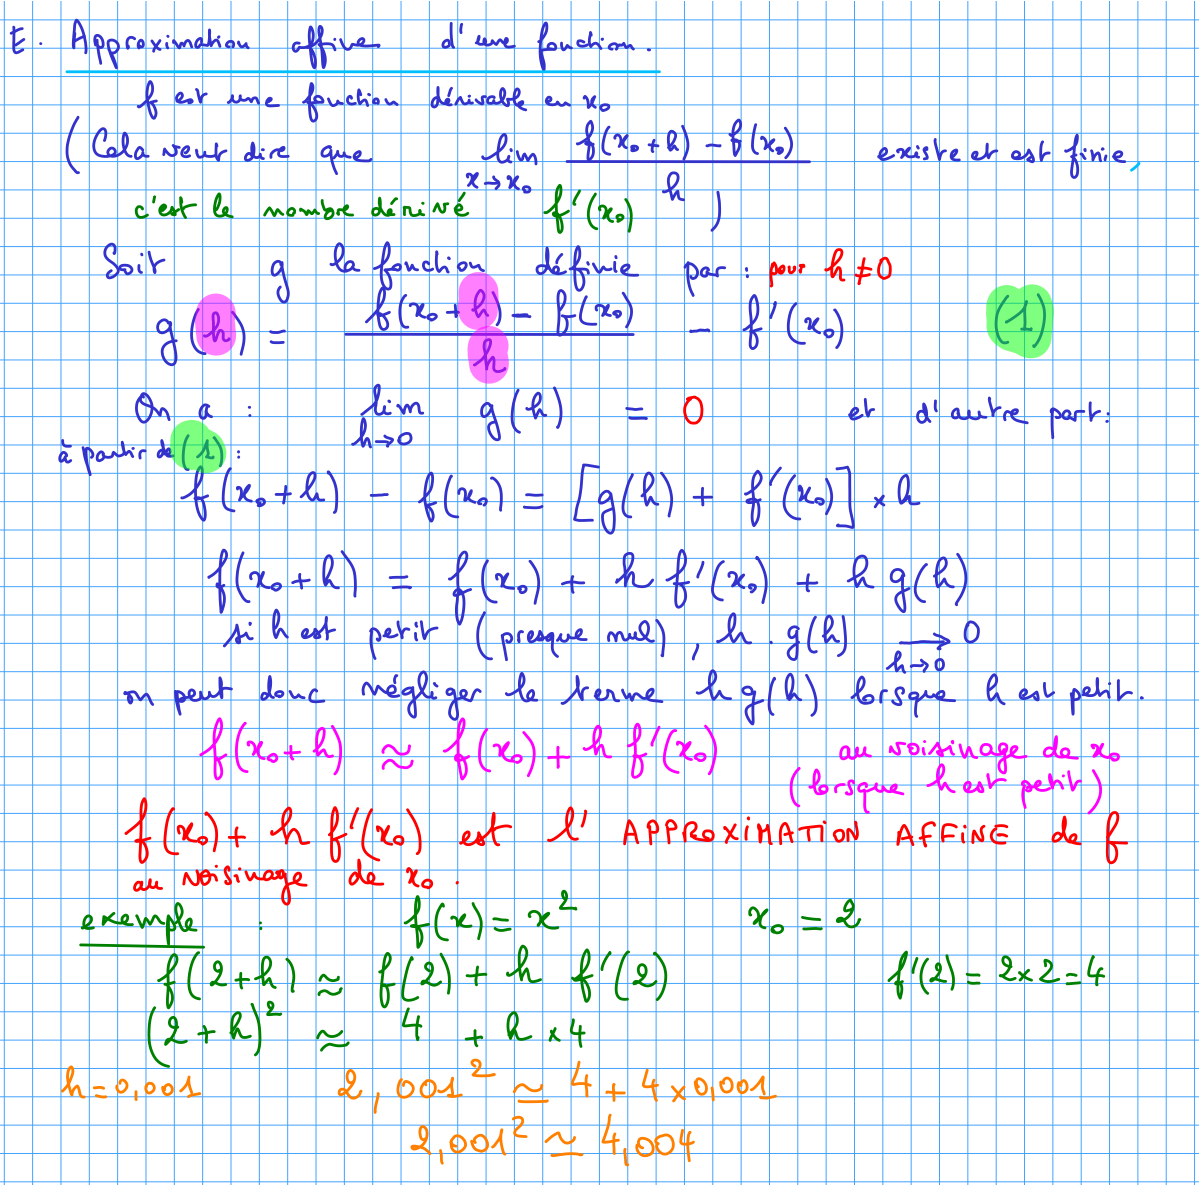 E. Approximation affine d'une fonction.
f est une fonction dérivable en x₀
(Cela veut dire que lim x→x₀ (f(x₀+h) - f(x₀))/h existe et est finie,
c'est le nombre dérivé f'(x₀) )
Soit g la fonction définie par : pour h ≠ 0
g(h) = (f(x₀+h) - f(x₀))/h - f'(x₀) (1)
On a : lim h→0 g(h) = 0 et d'autre part :
à partir de (1) :
f(x₀+h) - f(x₀) = [g(h) + f'(x₀)] × h
f(x₀+h) = f(x₀) + h f'(x₀) + h g(h)
si h est petit (presque nul), h . g(h) → 0 h→0
on peut donc négliger le terme h g(h) lorsque h est petit.
f(x₀+h) ≈ f(x₀) + h f'(x₀) au voisinage de x₀
(lorsque h est petit)
f(x₀) + h f'(x₀) est l' APPROXIMATION AFFINE de f
au voisinage de x₀.
exemple : f(x) = x² x₀ = 2
f(2+h) ≈ f(2) + h f'(2) f'(2) = 2×2 = 4
(2+h)² ≈ 4 + h × 4
h = 0,001 2,001² ≃ 4 + 4 × 0,001
2,001² ≃ 4,004